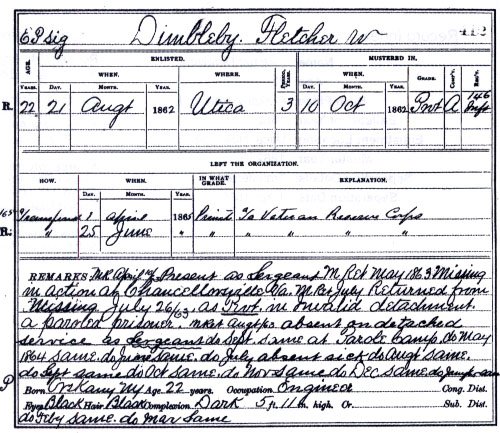 6 P sig Dimbleby. Fletcher W 412
AGE. ENLISTED. MUSTERED IN.
WHEN. WHERE. PERIOD, YEARS. WHEN. GRADE. CO'Y. REG'T.
YEARS. DAY. MONTH. YEAR. DAY. MONTH. YEAR.
R. 22 21 Augt 1862 Utica 3 10 Oct 1862 Pvt A 146 Inft
LEFT THE ORGANIZATION.
HOW. WHEN. IN WHAT GRADE. EXPLANATION.
DAY. MONTH. YEAR.
Transfered 1 April 1865 Private To Veteran Reserve Corps
R. " 25 June " " "
REMARKS M R April Present as Sergeant M Ret May 1863 Missing
in Action at Chancellorsville Va. M Ret July Returned from
Missing July 26/63 as Pvt. in invalid detachment
a paroled prisoner. M Ret Augt/63 absent on detached
service as Sergeant do Sept. same at Parole Camp. do May
1864 same. do June same. do July absent sick do Augt same.
do Sept same do Oct same. do Nov same do Dec same. do
P Born Oriskany NY Age 22 years. Occupation Engineer Cong. Dist.
Eyes Black Hair Black Complexion Dark 5 ft. 11 in. high. Or. Sub. Dist.
do Feby same. do Mar same